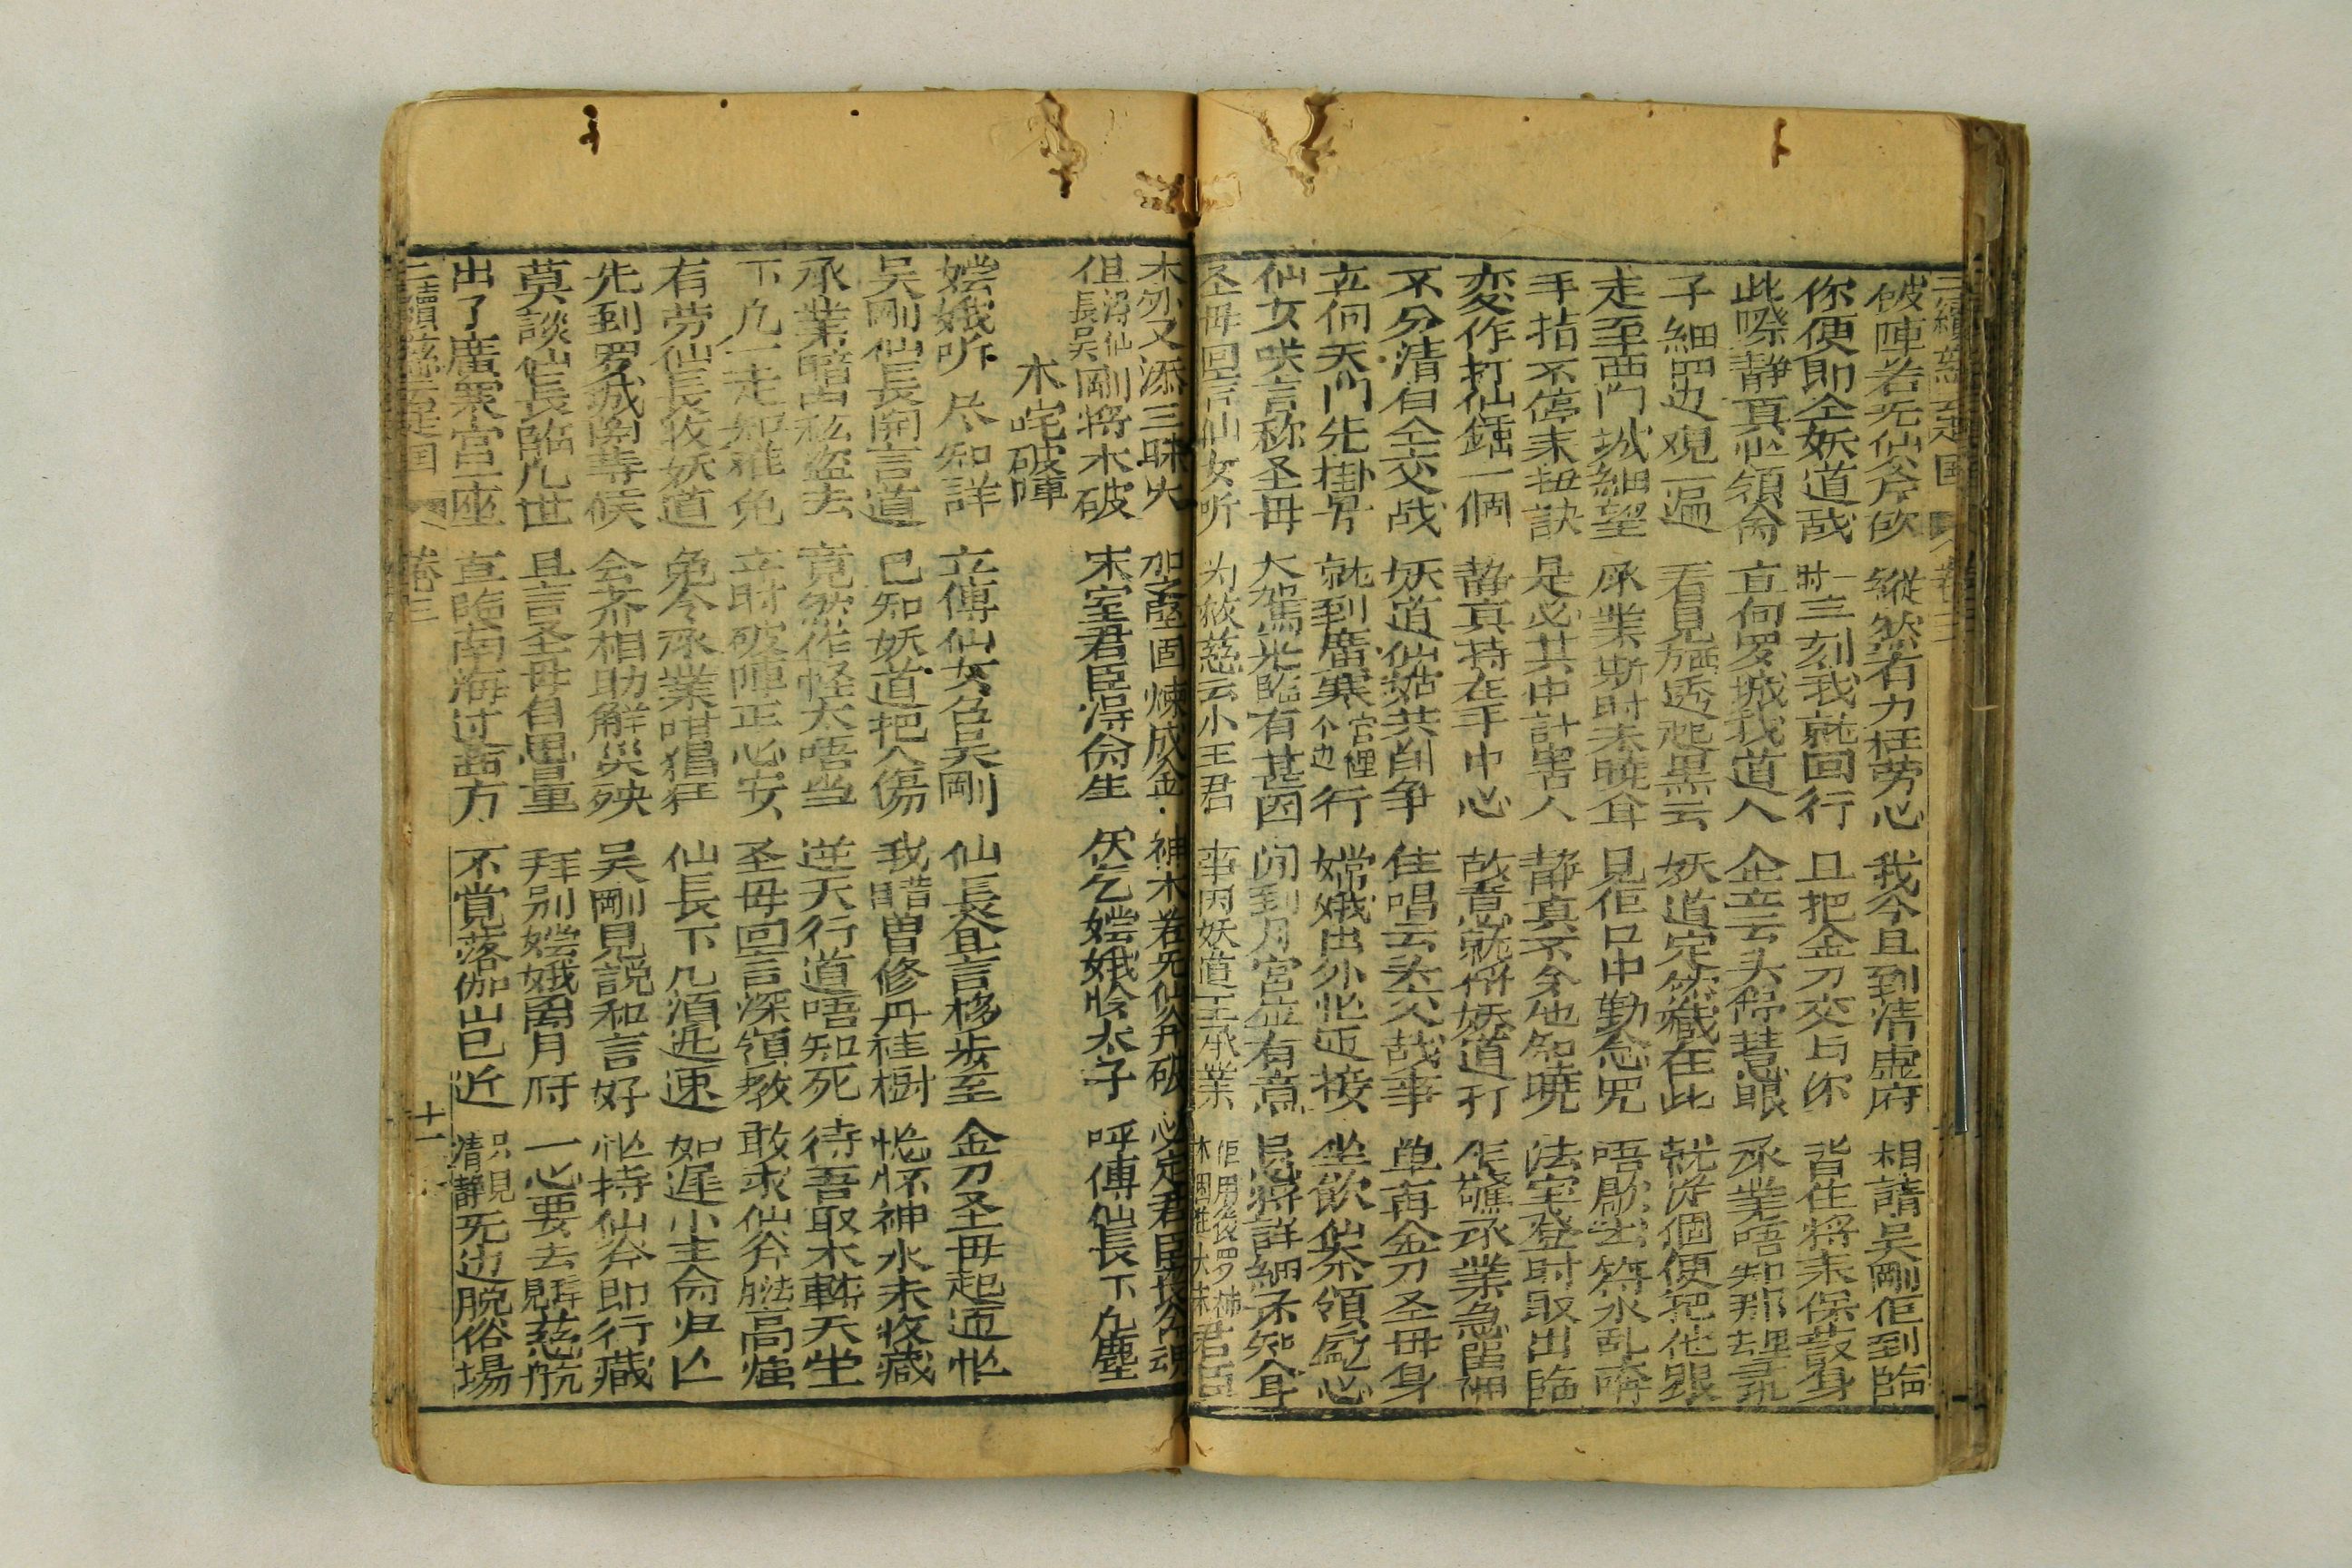 破陣若无仙斧砍 縱然有力枉劳心 我今且到清虛府 相請吴剛佢到臨
你便即仝妖道战 一时三刻我就回行 且把金刀交与你 背在將来保護身
此嘹静真心領命 直向罗城我道人 企在云头得慧眼 承業唔知那𡊨
子細四边观一遍 看見旌透起黑云 妖道定然藏在此 就淀個便把他跟
走至西門城細望 承業斯时未晓耸 見佢口中勤念咒 唔歇出符水乱
手指不停来扭訣 是必其中計害人 静真不令他知曉 法宝登时取出臨
变作打仙鍾一個 静真持在手中心 故意就将妖道打 乍驚承業急
不分清白仝交战 妖道仙姑共鬥争 住唱云头交战事 单再金刀圣毋身
立向天門先掛号 就到廣寒宮裡个边行 嫦娥出外忙迎接 坐飲領尽心
仙女咲言称圣毋 大駕光臨有甚因 闲到月宮並有意 是將詳細来知
圣毋回言仙女听 为救慈云小王君 事因妖道王承業 佢用
木外又添三昧火 加之堅固煉成金 神木若无仙斧破 必定君臣丧命魂
但得仙長吴剛將木破 宋室君臣得命生 伏乞嫦娥怜太子 呼傳仙長下凡塵
木咤破陣
嫦娥听 尽知詳 立傳仙女召吴剛 仙長企言移步至 金刀圣毋起迎忙
吴剛仙長開言道 已知妖道把人傷 我暗曽修丹桂樹 怆怀神水未收藏
承業暗中私盜去 竟然作怪太唔当 逆天行道唔知死 待吾取木轉天堂
下凡一走知难免 立时破陣正心安 圣毋回言深領教 敢求仙斧法高強
有劳仙長收妖道 免令承業咁猖狂 仙長下凡須进速 如遲小主命归亡
先到罗城開等候 会齐相助解災殃 吴剛見說和言好 忙持仙斧即行藏
莫談仙長臨凡世 且言圣毋自思量 拜别嫦娥离月府 一心要去見慈航
出了廣寒宮一座 直臨南海过西方 不覚落伽山已近 只見清静无边脱俗場
卷三
十一